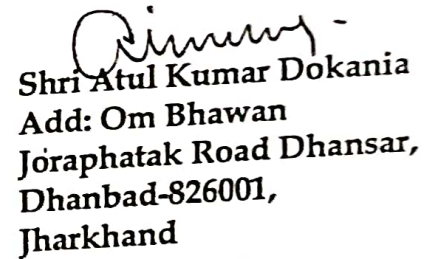 Shri Atul Kumar Dokania
Add: Om Bhawan
Joraphatak Road Dhansar,
Dhanbad-826001,
Jharkhand